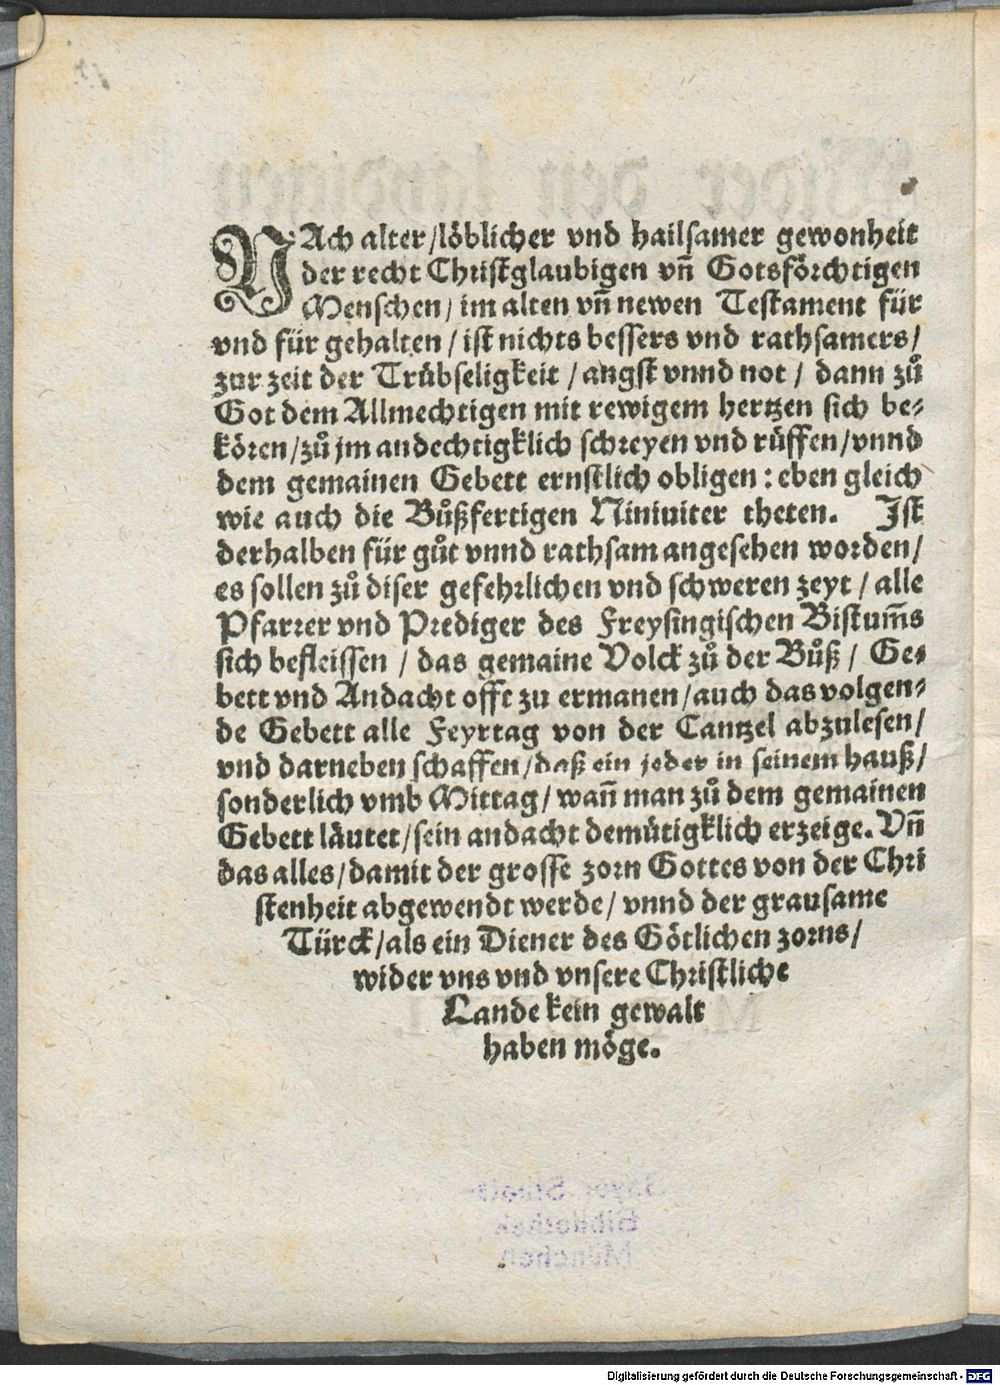 NAch alter/löblicher vnd hailsamer gewonheit
der recht Christglaubigen vñ Gotsförchtigen
Menschen/ im alten vñ newen Testament für
vnd für gehalten / ist nichts bessers vnd rathsamers/
zur zeit der Trübseligkeit / angst vnnd not / dann zů
Got dem Allmechtigen mit rewigem hertzen sich be-
kören/zů jm andechtigklich schreyen vnd rüffen/vnnd
dem gemainen Gebett ernstlich obligen: eben gleich
wie auch die Bůßfertigen Niniuiter theten. Ist
derhalben für gůt vnnd rathsam angesehen worden/
es sollen zů diser gefehrlichen vnd schweren zeyt / alle
Pfarrer vnd Prediger des Freysingischen Bistum̃s
sich befleissen / das gemaine Volck zů der Bůß / Ge-
bett vnd Andacht offt zu ermanen/auch das volgen-
de Gebett alle Feyrtag von der Cantzel abzulesen/
vnd darneben schaffen/daß ein jeder in seinem hauß/
sonderlich vmb Mittag/ wañ man zů dem gemainen
Gebett läutet/sein andacht demütigklich erzeige. Vñ
das alles/damit der grosse zorn Gottes von der Chri
stenheit abgewendt werde/ vnnd der grausame
Türck/als ein Diener des Götlichen zorns/
wider vns vnd vnsere Christliche
Lande kein gewalt
haben möge.
Bayer. Staats-
Bibliothek
München
Digitalisierung gefördert durch die Deutsche Forschungsgemeinschaft - DFG